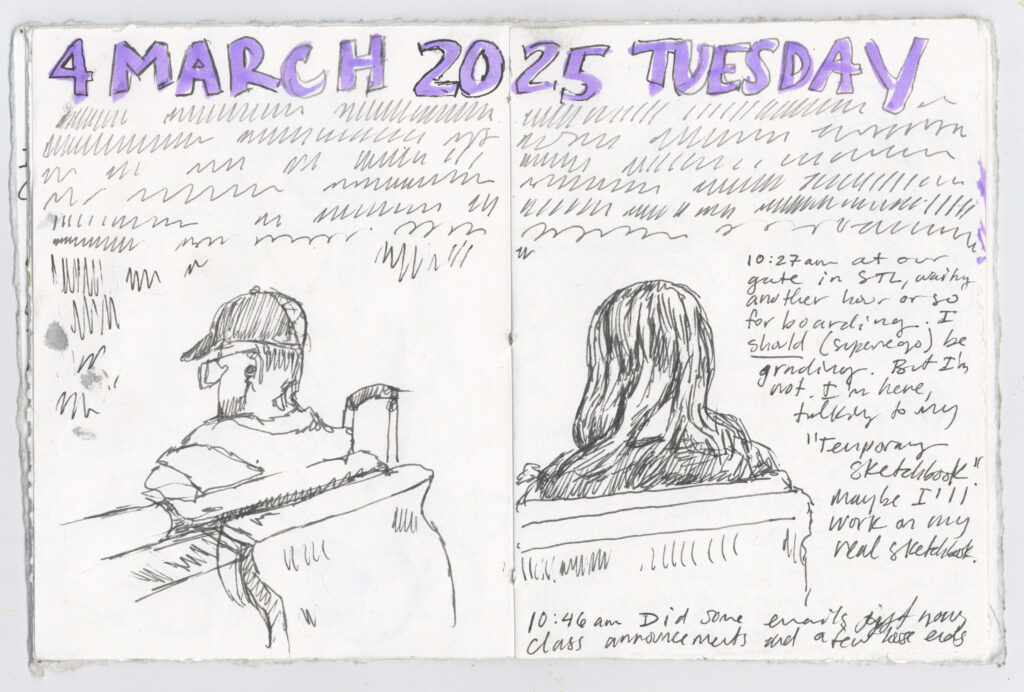 4 MARCH 2025 TUESDAY
10:27am at our
gate in STL, waiting
another hour or so
for boarding. I
should (superego) be
grading. But I'm
not. I'm here,
talking to my
"Temporary
Sketchbook."
Maybe I'll
work on my
real sketchbook.
10:46am Did some emails just now
Class announcements and a few loose ends